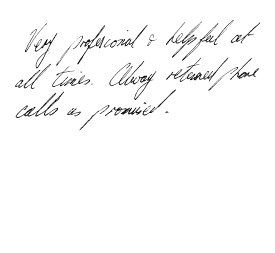 Very profesional & helpful at
all times. Alway returned phone
calls as promised.